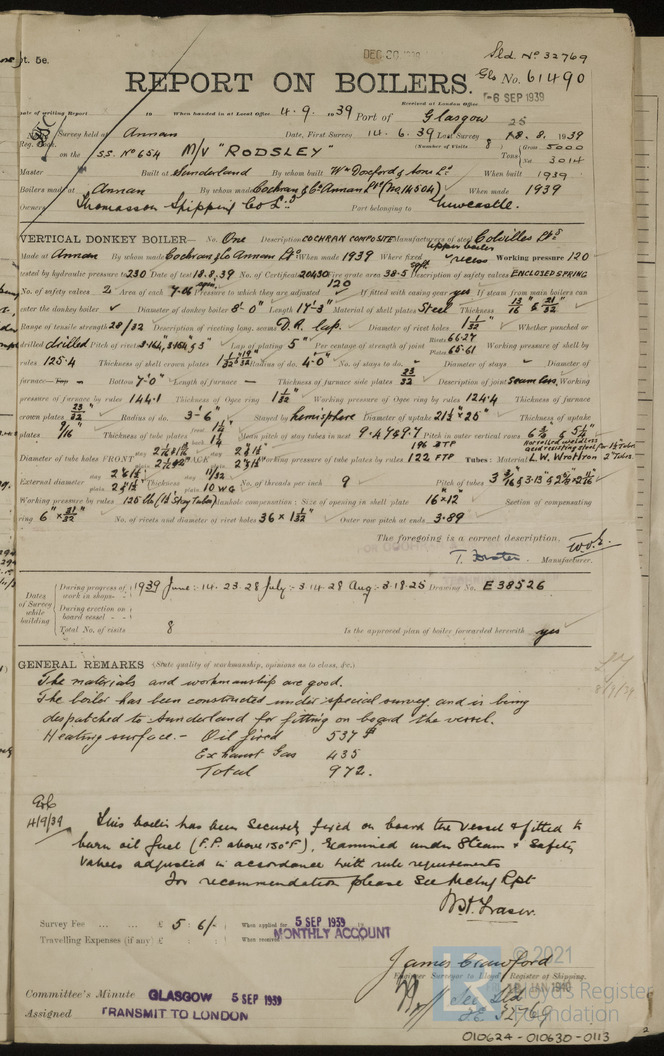 pt. 5e.
DEC 30 1939
Sld. No 32769
REPORT ON BOILERS.
Gls No. 61490
Received at London Office 6 SEP 1939
Date of writing Report 19 When handed in at Local Office 4.9.1939 Port of Glasgow
Survey held at Annan Date, First Survey 14.6.39 Last Survey 18.8.1939
Reg. Book. (Number of Visits 8)
on the S.S. No 654 M/V "RODSLEY" Tons Gross 5000 Net 3014
Master Built at Sunderland By whom built Wm Doxford & Sons Ld When built 1939
Boilers made at Annan By whom made Cochran & Co Annan Ltd (No 14504) When made 1939
Owners Thomasson Shipping Co Ld Port belonging to Newcastle.
VERTICAL DONKEY BOILER— No. One Description COCHRAN COMPOSITE Manufacturers of steel Colvilles Ltd
Made at Annan By whom made Cochran & Co Annan Ltd When made 1939 Where fixed upper boiler recess Working pressure 120
tested by hydraulic pressure to 230 Date of test 18.8.39 No. of Certificate 20430 Fire grate area 38.5 Description of safety valves ENCLOSED SPRING
No. of safety valves 2 Area of each 7.06 Pressure to which they are adjusted 120 If fitted with easing gear yes If steam from main boilers can
enter the donkey boiler Diameter of donkey boiler 8'-0" Length 17'-3" Material of shell plates Steel Thickness 13/16" & 21/32"
Range of tensile strength 28/32 Description of riveting long. seams D.R. Lap. Diameter of rivet holes 1 1/32" Whether punched or
drilled drilled Pitch of rivets Lap of plating 5" Per centage of strength of joint Rivets 66.27 Plates 65.61 Working pressure of shell by
rules 125.4 Thickness of shell crown plates Radius of do. 4'-0" No. of stays to do. Diameter of stays Diameter of
furnace—Top Bottom 7'-0" Length of furnace Thickness of furnace side plates 23/32 Description of joint seamless. Working
pressure of furnace by rules 144.1 Thickness of Ogee ring 1 1/32" Working pressure of Ogee ring by rules 124.4 Thickness of furnace
crown plates 23/32" Radius of do. 3'-6" Stayed by hemisphere Diameter of uptake 21 1/2" x 25" Thickness of uptake
plates 9/16" Thickness of tube plates front back Mean pitch of stay tubes in nest 9.47 & 9.7 Pitch in outer vertical rows
Diameter of tube holes FRONT BACK Working pressure of tube plates by rules 196 BTP 122 FTP Tubes: Material L.W. Wrot Iron
External diameter Thickness 11/32 10 WG No. of threads per inch 9 Pitch of tubes
Working pressure by rules 125 lbs (1 1/2" Stay Tubes) Manhole compensation: Size of opening in shell plate 16" x 12" Section of compensating
ring 6" x 31/32" No. of rivets and diameter of rivet holes 36 x 1 1/32" Outer row pitch at ends 3.89
The foregoing is a correct description,
T. Foster. Manufacturer.
Dates of Survey while building
During progress of work in shops - - 1939 June:- 14. 23. 28 July:- 3 14. 28 Aug:- 3. 18. 25 Drawing No. E38526
During erection on board vessel - - -
Total No. of visits 8 Is the approved plan of boiler forwarded herewith yes
GENERAL REMARKS (State quality of workmanship, opinions as to class, &c.)
The materials and workmanship are good.
The boiler has been constructed under special survey and is being
despatched to Sunderland for fitting on board the vessel.
Heating surface.- Oil fired 537
Exhaust Gas 435
Total 972.
14/9/39
This boiler has been securely fixed on board the vessel & fitted to
burn oil fuel (F.P. above 150°F). Examined under steam & safety
valves adjusted in accordance with rule requirements
For recommendation please see Mchy Rpt
W.H. Fraser.
Survey Fee ... ... £ 5 : 6/- : When applied for 5 SEP 1939
MONTHLY ACCOUNT
Travelling Expenses (if any) £ : : When received 19
James Crawford
Engineer Surveyor to Lloyd's Register of Shipping.
Committee's Minute GLASGOW 5 SEP 1939
JAN 1940
Assigned TRANSMIT TO LONDON
See Sld
32769
© 2021
Lloyd's Register
Foundation
010624-010630-0113